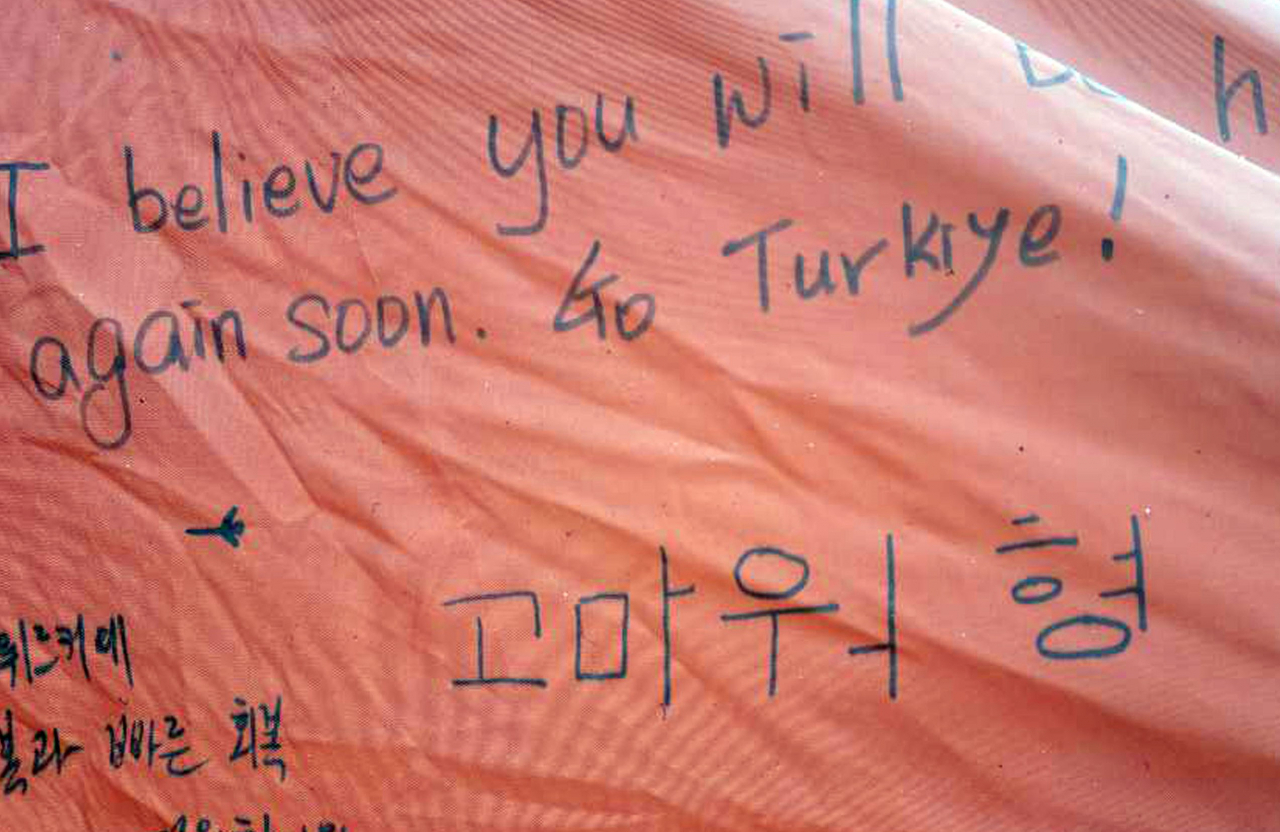 I believe you will
again soon. Go Turkiye!
고마워 형
뤼르키에
빠른 회복